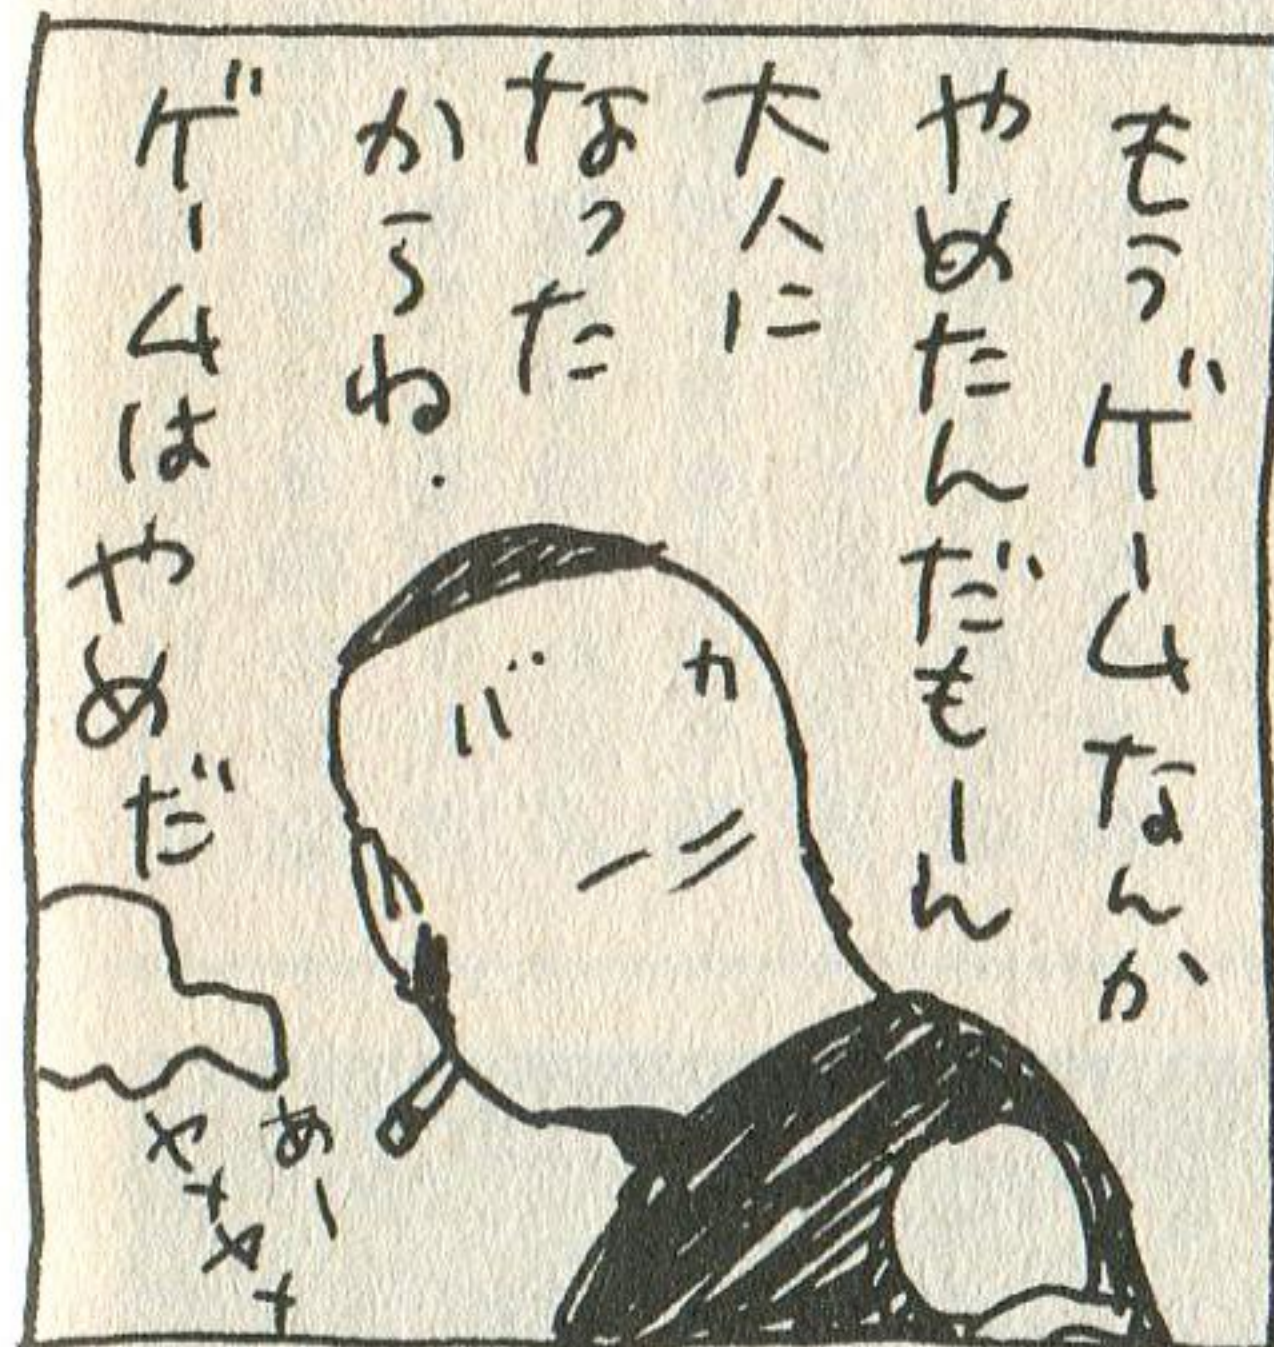 もうゲームなんか
やめたんだもーん
大人に
なった
からね.
ゲームはやめだ
バカ
あー
ヤメヤメ